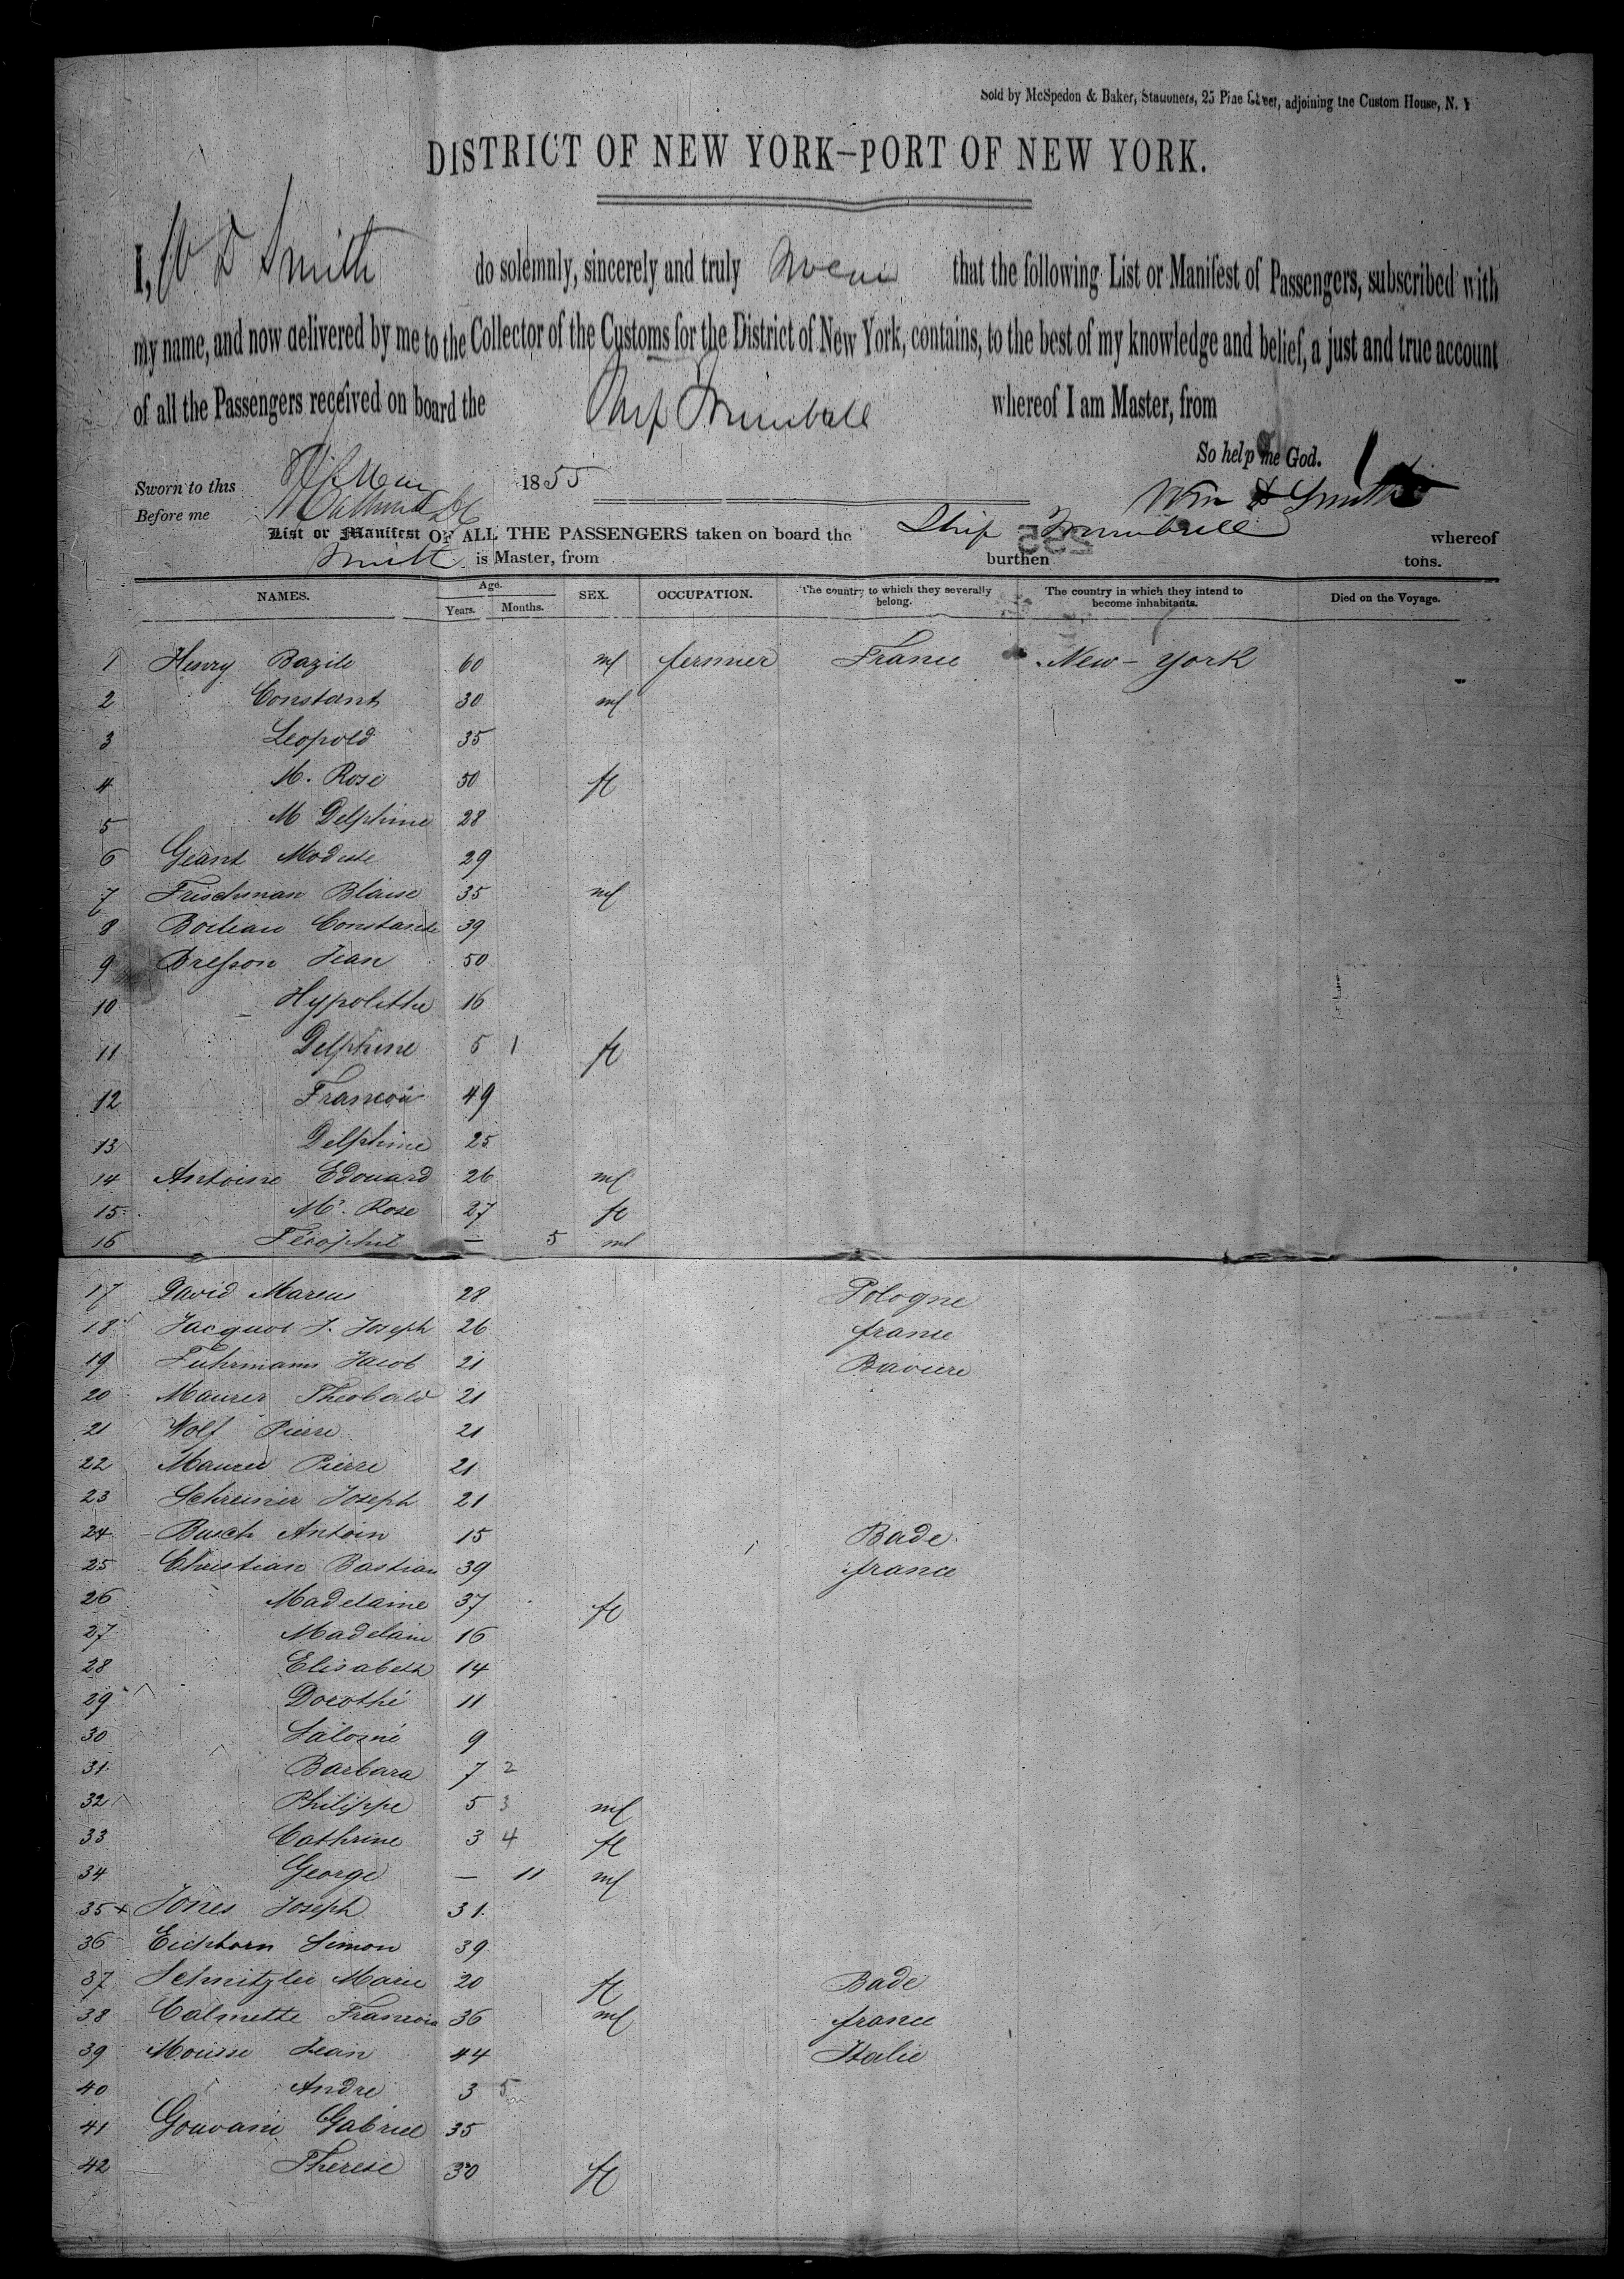 Sold by McSpedon & Baker, Stationers, 25 Pine Street, adjoining the Custom House, N. Y
DISTRICT OF NEW YORK–PORT OF NEW YORK.
I, W D Smith do solemnly, sincerely and truly swear that the following List or Manifest of Passengers, subscribed with
my name, and now delivered by me to the Collector of the Customs for the District of New York, contains, to the best of my knowledge and belief, a just and true account
of all the Passengers received on board the Ship Trumbull whereof I am Master, from
So help me God.
Sworn to this 1855
Wm D Smith
Before me
List or Manifest OF ALL THE PASSENGERS taken on board the Ship Trumbull whereof
Smith is Master, from burthen tons.
NAMES. Age. Years. Months. SEX. OCCUPATION. The country to which they severally belong. The country in which they intend to become inhabitants. Died on the Voyage.
1 Henry Bazile 60 m fermier France New-York
2 Constant 30 m
3 Leopold 35
4 M. Rose 50 fe
5 M Delphine 28
6 Geant Modeste 29
7 Frischman Blaise 35 m
8 Boileau Constande 39
9 Bresson Jean 50
10 Hypolithe 16
11 Delphine 5 1 fe
12 Francois 49
13 Delphine 25
14 Antoine Edouard 26 m
15 M. Rose 27 fe
16 Téophil — 5 m
17 David Marcus 28 Pologne
18 Jacquot J. Joseph 26 france
19 Fuhrmann Jacob 21 Baviere
20 Maurer Theobald 21
21 Wolf Pierre 21
22 Maurer Pierre 21
23 Schreiner Joseph 21
24 Busch Antoin 15 Bade
25 Christian Bastian 39 france
26 Madelaine 37 fe
27 Madelain 16
28 Elisabeth 14
29 Dorothé 11
30 Salomé 9
31 Barbara 7 2
32 Philippe 5 3 m
33 Cathrine 3 4 fe
34 George — 11 m
35 + Jones Joseph 31
36 Eichhorn Simon 39
37 Schnitzler Marie 20 fe Bade
38 Calmette Francois 36 m france
39 Mousse Jean 44 Italie
40 Andre 3 5
41 Gouvani Gabriel 35
42 Therese 30 fe